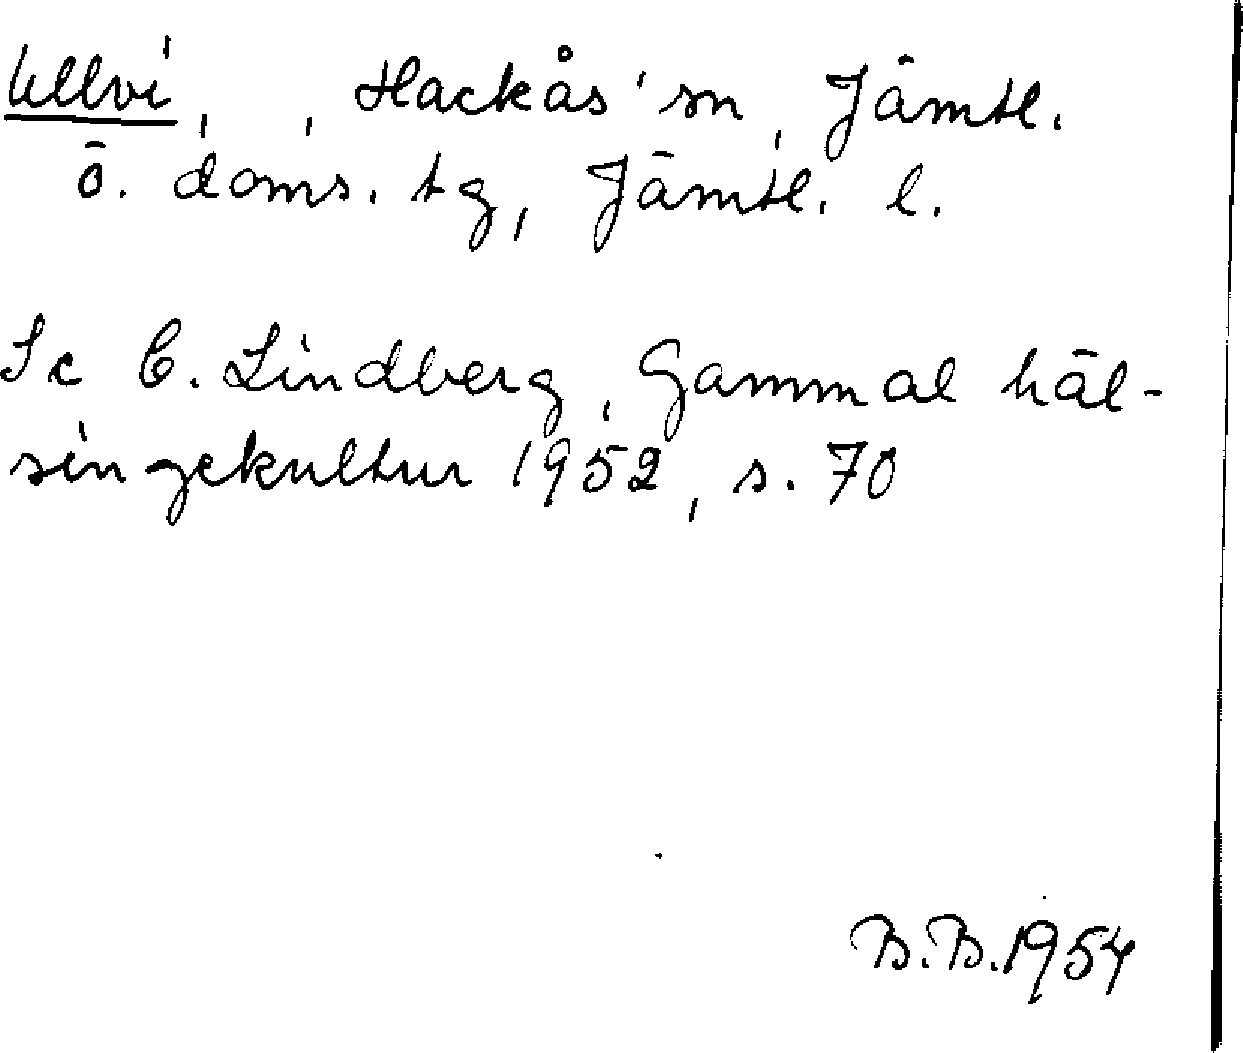 Ullvi, , Hackås sn, Jämtl.
ö. doms. tg, Jämtl. l.
Se C. Lindberg, Gammal häl-
singekultur 1952, s. 70
B.B.1954